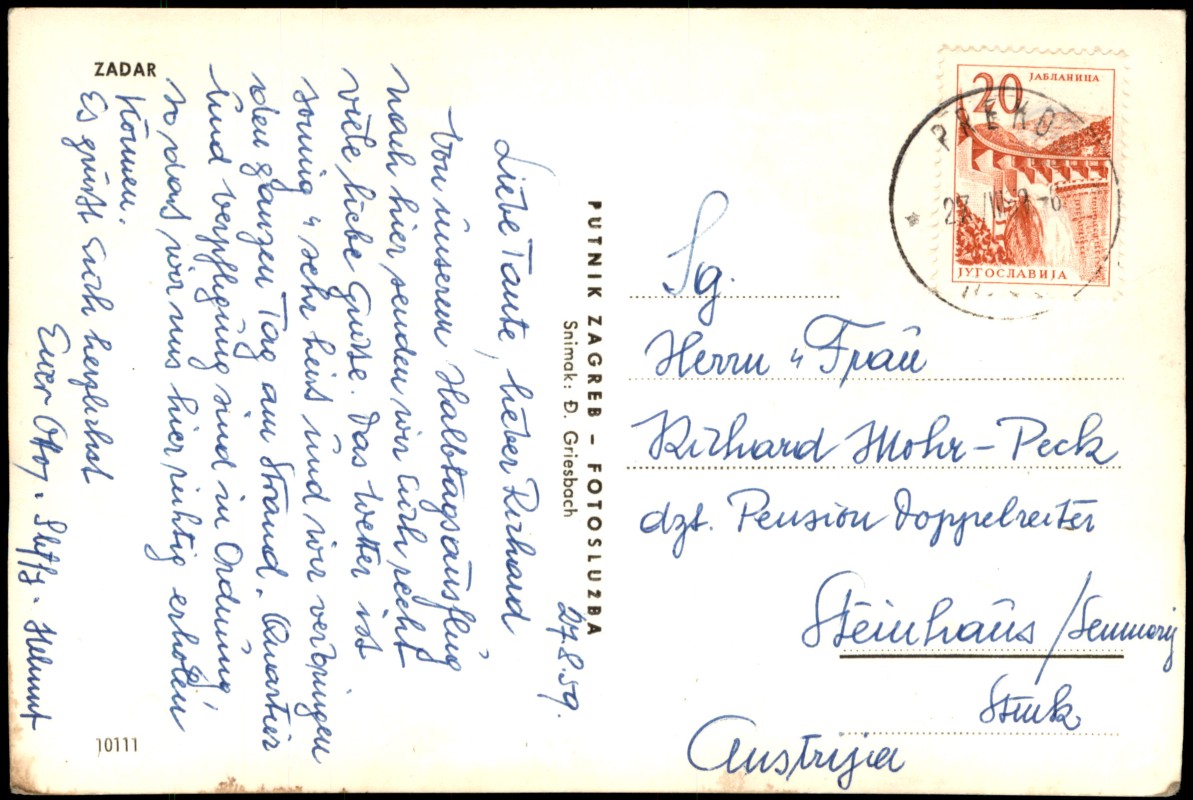 ZADAR
27.8.59.
Liebe Tante, lieber Richard
Von unserem Halbtagsausflug
nach hier senden wir Euch recht
viele liebe Grüsse. Das Wetter ist
sonnig u sehr heiss und wir verbringen
den ganzen Tag am Strand. Quartier
und Verpflegung sind in Ordnung,
so dass wir uns hier richtig erholen
können.
Es grüsst Euch herzlichst
Euer Otto, Steffi, Helmut
10111
PUTNIK ZAGREB – FOTOSLUŽBA
Snimak: Đ. Griesbach
20 ЈАБЛАНИЦА
ЈУГОСЛАВИЈА
PREKO
Sg.
Herrn u Frau
Richard Mohr-Peck
dzt. Pension Doppelreiter
Steinhaus / Semmering
Stmk
Austrija